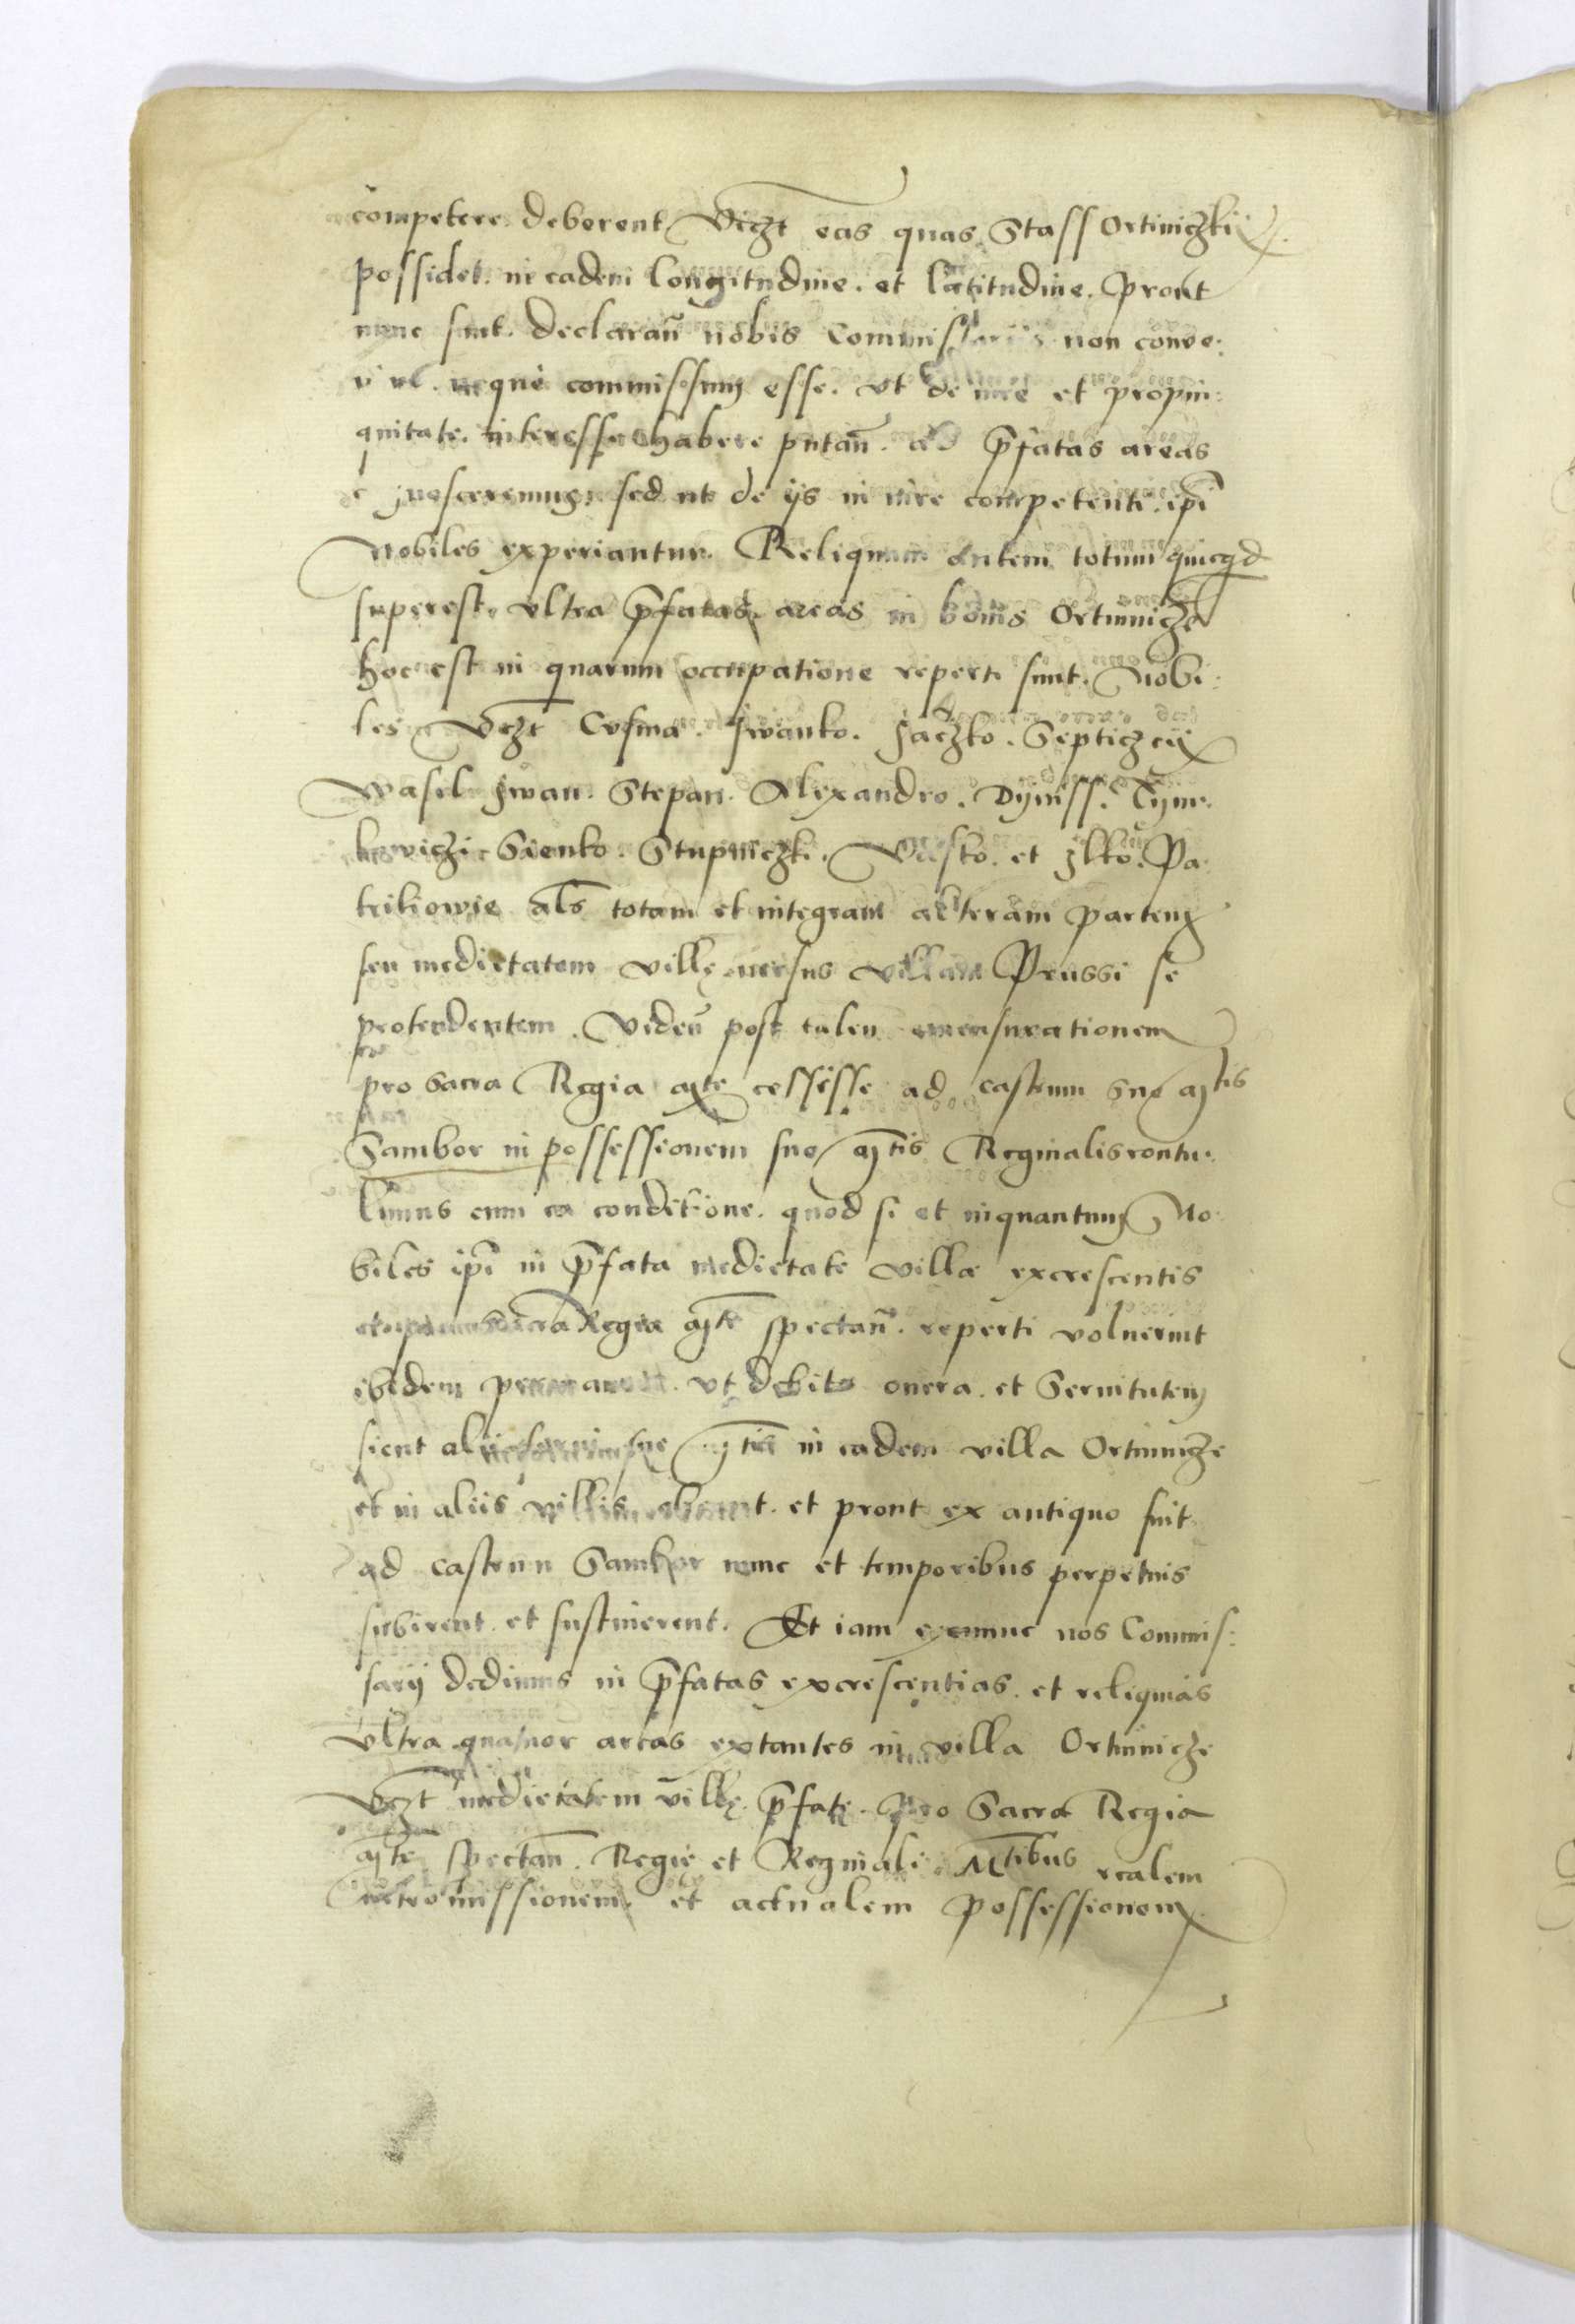 competere deberent Viczt eas quas Stass Ortiniczkii
possidet. in eadem longitudine. et latitudine. prout
nunc sunt. declaran̄ nobis Commissariis non conve:
neque commissum esse. vt de iure et propin:
quitate. interesse habere putan̄. ad p̄fatas areas
sed ut de ijs in iure competenti. ipī
Nobiles experiantur. Reliquum autem totum quicqd
superest. vltra p̄fatas. areas in bonis Ortinicze
hoc est in quarum occupatione reperti sunt. Nobi:
les Vczt Cosma. Iwanko. Iaczko. Septiczcii
Wasil Iwan. Stepan. Alexandro. Dyniss. Tym:
kowiczi Sienko. Stupniczki. Vasko. et Ilko. Pa:
trikiowie al̄s totam et integram alteram partem
seu medietatem villę versus villam Prussi se
protendentem. Viden̄ post talem mensurationem
pro Sacra Regia Mt̄e cessisse ad castrum Suę Mtis
Sambor in possessionem suę Mt̄is Reginalis contu:
limus cum ea conditione. quod si et inquantum No:
biles ipī in p̄fata medietate villæ excrescentis
Sacra Regia Mt̄e spectan̄. reperti voluerint
ibidem vt debita onera. et Seruitutem
sicut alii suę Mt̄is in eadem villa Ortinicze
et in aliis villis et prout ex antiquo fuit
ad castrum Sambor nunc et temporibus perpetuis
subirent. et sustinerent. Et iam exnunc nos Commis:
sarij dedimus in p̄fatas excrescentias. et reliquias
vltra quatuor areas extantes in villa Ortinicze
Vczt medietatem villę. p̄fatę. pro Sacra Regia
Mt̄e spectan̄. Regie et Reginali Mtibus realem
intromissionem. et actualem possessionem